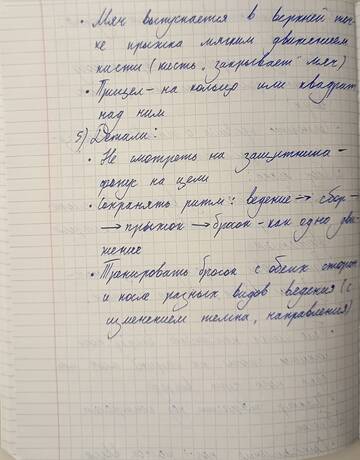 • Мяч выпускается в верхней точ-
ке прыжка мягким движением
кисти (кисть „закрывает" мяч)
• Прицел - на кольцо или квадрат
над ним
5) Детали:
• Не смотреть на защитника -
фокус на цели
• Сохранять ритм: ведение → сбор →
→ прыжок → бросок - как одно дви-
жение
• Тренировать бросок с обеих сторон
и после разных видов ведения (с
изменением темпа, направления)